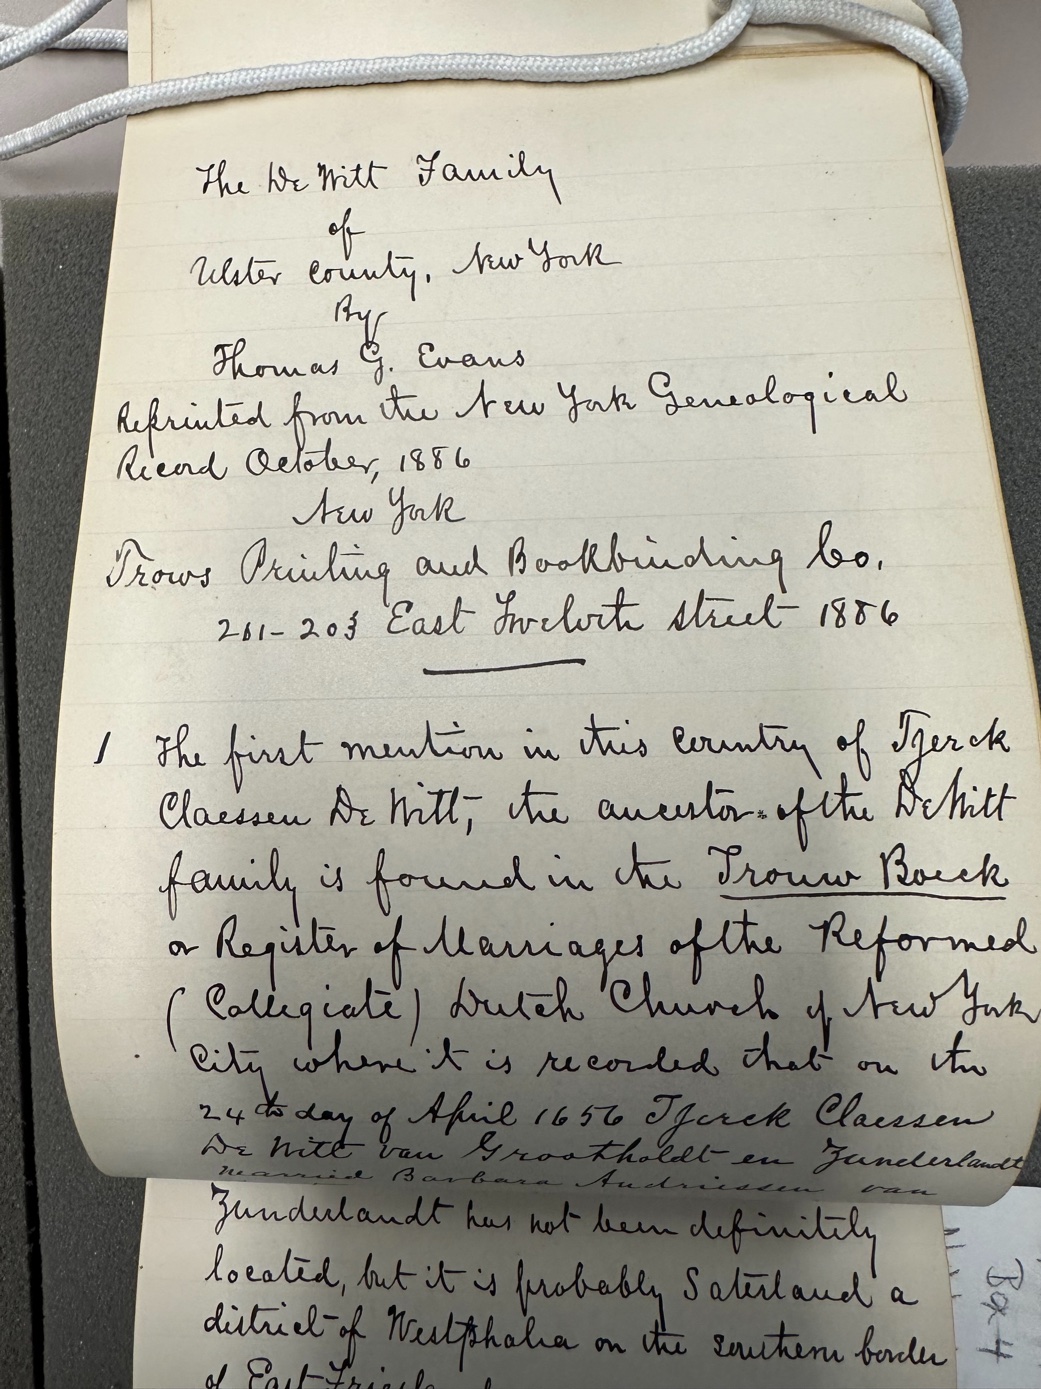 The De Witt Family
of
Ulster County, New York
By
Thomas G. Evans
Reprinted from the New York Genealogical
Record October, 1886
New York
Trows Printing and Bookbinding Co.
201-203 East Twelvth street 1886
1 The first mention in this Country of Tjerck
Claessen De Witt, the ancestor of the DeWitt
family is found in the Trouw Boeck
or Register of Marriages of the Reformed
(Collegiate) Dutch Church of New York
City where it is recorded that on the
24th day of April 1656 Tjerck Claessen
De Witt van Grootholdt en Zunderlandt
married Barbara Andriessen van
Zunderlandt has not been definitely
located, but it is probably Saterland a
district of Westphalia on the southern border
of East
Box 4